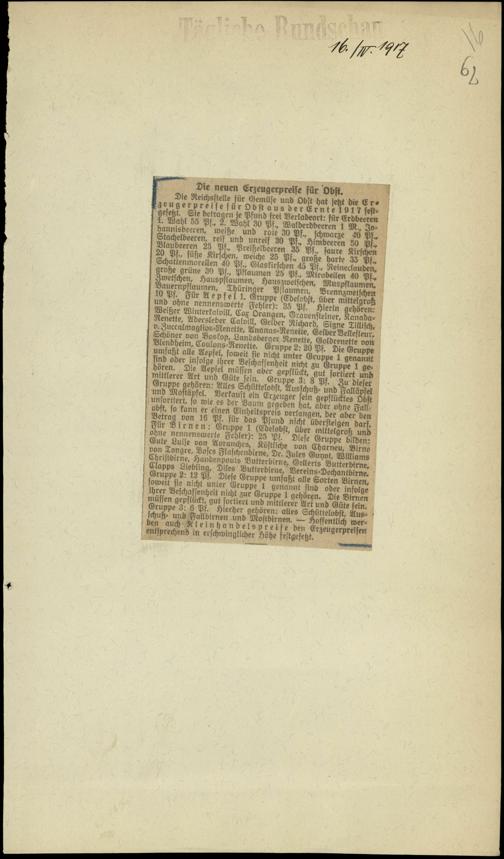 Tägliche Rundschau
16./IV. 1917
Die neuen Erzeugerpreise für Obst.
Die Reichsstelle für Gemüse und Obst hat setzt die Er-
zeugerpreise für Obst aus der Ernte 1917 fest-
gesetzt. Sie betragen je Pfund frei Verladeort: für Erdbeeren
1. Wahl 55 Pf., 2. Wahl 30 Pf., Walderdbeeren 1 M., Jo-
hannisbeeren, weiße und rote 30 Pf., schwarze 40 Pf.,
Stachelbeeren, reif und unreif 30 Pf., Himbeeren 50 Pf.,
Blaubeeren 25 Pf., Preißelbeeren 35 Pf., saure Kirschen
20 Pf., süße Kirschen, weiche 25 Pf., große harte 35 Pf.,
Schattenmorellen 40 Pf., Glaskirschen 45 Pf., Reineclauden,
große grüne 30 Pf., Pflaumen 25 Pf., Mirabellen 40 Pf.,
Zwetschen, Hauspflaumen, Hauszwetschen, Muspflaumen,
Bauernpflaumen, Thüringer Pflaumen, Brennzwetschen
10 Pf. Für Aepfel 1. Gruppe (Edelobst, über mittelgroß
und ohne nennenswerte Fehler): 35 Pf. Hierin gehören:
Weißer Winterkalvill, Cox Orangen, Gravensteiner, Kanada-
Renette, Adersleber Calvill, Gelber Richard, Signe Tillisch,
v. Zuccalmaglios-Renette, Ananas-Renette, Gelber Bellefleur,
Schöner von Boskop, Landsberger Renette, Goldrenette von
Blendheim, Coulons-Renette. Gruppe 2: 20 Pf. Die Gruppe
umfaßt alle Aepfel, soweit sie nicht unter Gruppe 1 genannt
sind oder infolge ihrer Beschaffenheit nicht zu Gruppe 1 ge-
hören. Die Aepfel müssen aber gepflückt, gut sortiert und
mittlerer Art und Güte sein. Gruppe 3: 8 Pf. Zu dieser
Gruppe gehören: Alles Schüttelobst, Ausschuß- und Falläpfel
und Mostäpfel. Verkauft ein Erzeuger sein gepflücktes Obst
unsortiert, so wie es der Baum gegeben hat, aber ohne Fall-
obst, so kann er einen Einheitspreis verlangen, der aber den
Betrag von 16 Pf. für das Pfund nicht übersteigen darf.
Für Birnen: Gruppe 1 (Edelobst, über mittelgroß und
ohne nennenswerte Fehler): 25 Pf. Diese Gruppe bilden:
Gute Luise von Avranches, Köstliche von Charneu, Birne
von Tongre, Boses Flaschenbirne, Dr. Jules Guyot, Williams
Christbirne, Hardenponts Butterbirne, Gellerts Butterbirne,
Clapps Liebling, Diels Butterbirne, Vereins-Dechantbirne.
Gruppe 2: 12 Pf. Diese Gruppe umfaßt alle Sorten Birnen,
soweit sie nicht unter Gruppe 1 genannt sind oder infolge
ihrer Beschaffenheit nicht zur Gruppe 1 gehören. Die Birnen
müssen gepflückt, gut sortiert und mittlerer Art und Güte sein.
Gruppe 3: 6 Pf. Hierher gehören: alles Schüttelobst, Aus-
schuß- und Fallbirnen und Mostbirnen. — Hoffentlich wer-
den auch Kleinhandelspreise den Erzeugerpreisen
entsprechend in erschwinglicher Höhe festgesetzt.